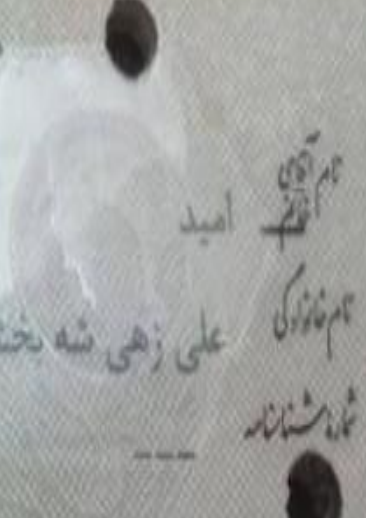 نام آقای خانم امید
نام خانوادگی علی زهی شه بخش
شماره شناسنامه ----